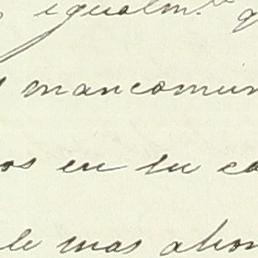 igualm.te
mancomun
os en su ca
le mas abon